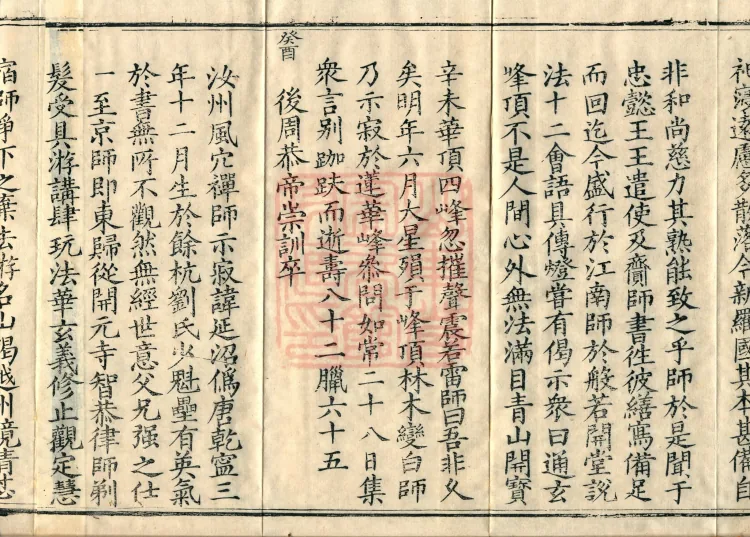 祖寖遠慮多散落今新羅國其本甚備自
非和尚慈力其孰能致之乎師於是聞于
忠懿王王遣使及齎師書徃彼繕寫備足
而回迄今盛行於江南師於般若開堂說
法十二會語具傳燈甞有偈示衆曰通玄
峰頂不是人間心外無法滿目青山開寶
辛未華頂四峰忽摧聲震若雷師曰吾非久
矣明年六月大星殞于峰頂林木變白師
乃示寂於蓮華峰叅問如常二十八日集
衆言别跏趺而逝壽八十二臘六十五
癸酉
後周恭帝崇訓卒
汝州風穴禪師示寂諱延沼僞唐乾寧三
年十二月生於餘杭劉氏少魁壘有英氣
於書無所不觀然無經世意父兄强之仕
一至京師即東歸從開元寺智恭律師剃
髮受具游講肆玩法華玄義修止觀定慧
宿師爭下之棄去游名山謁越州鏡清